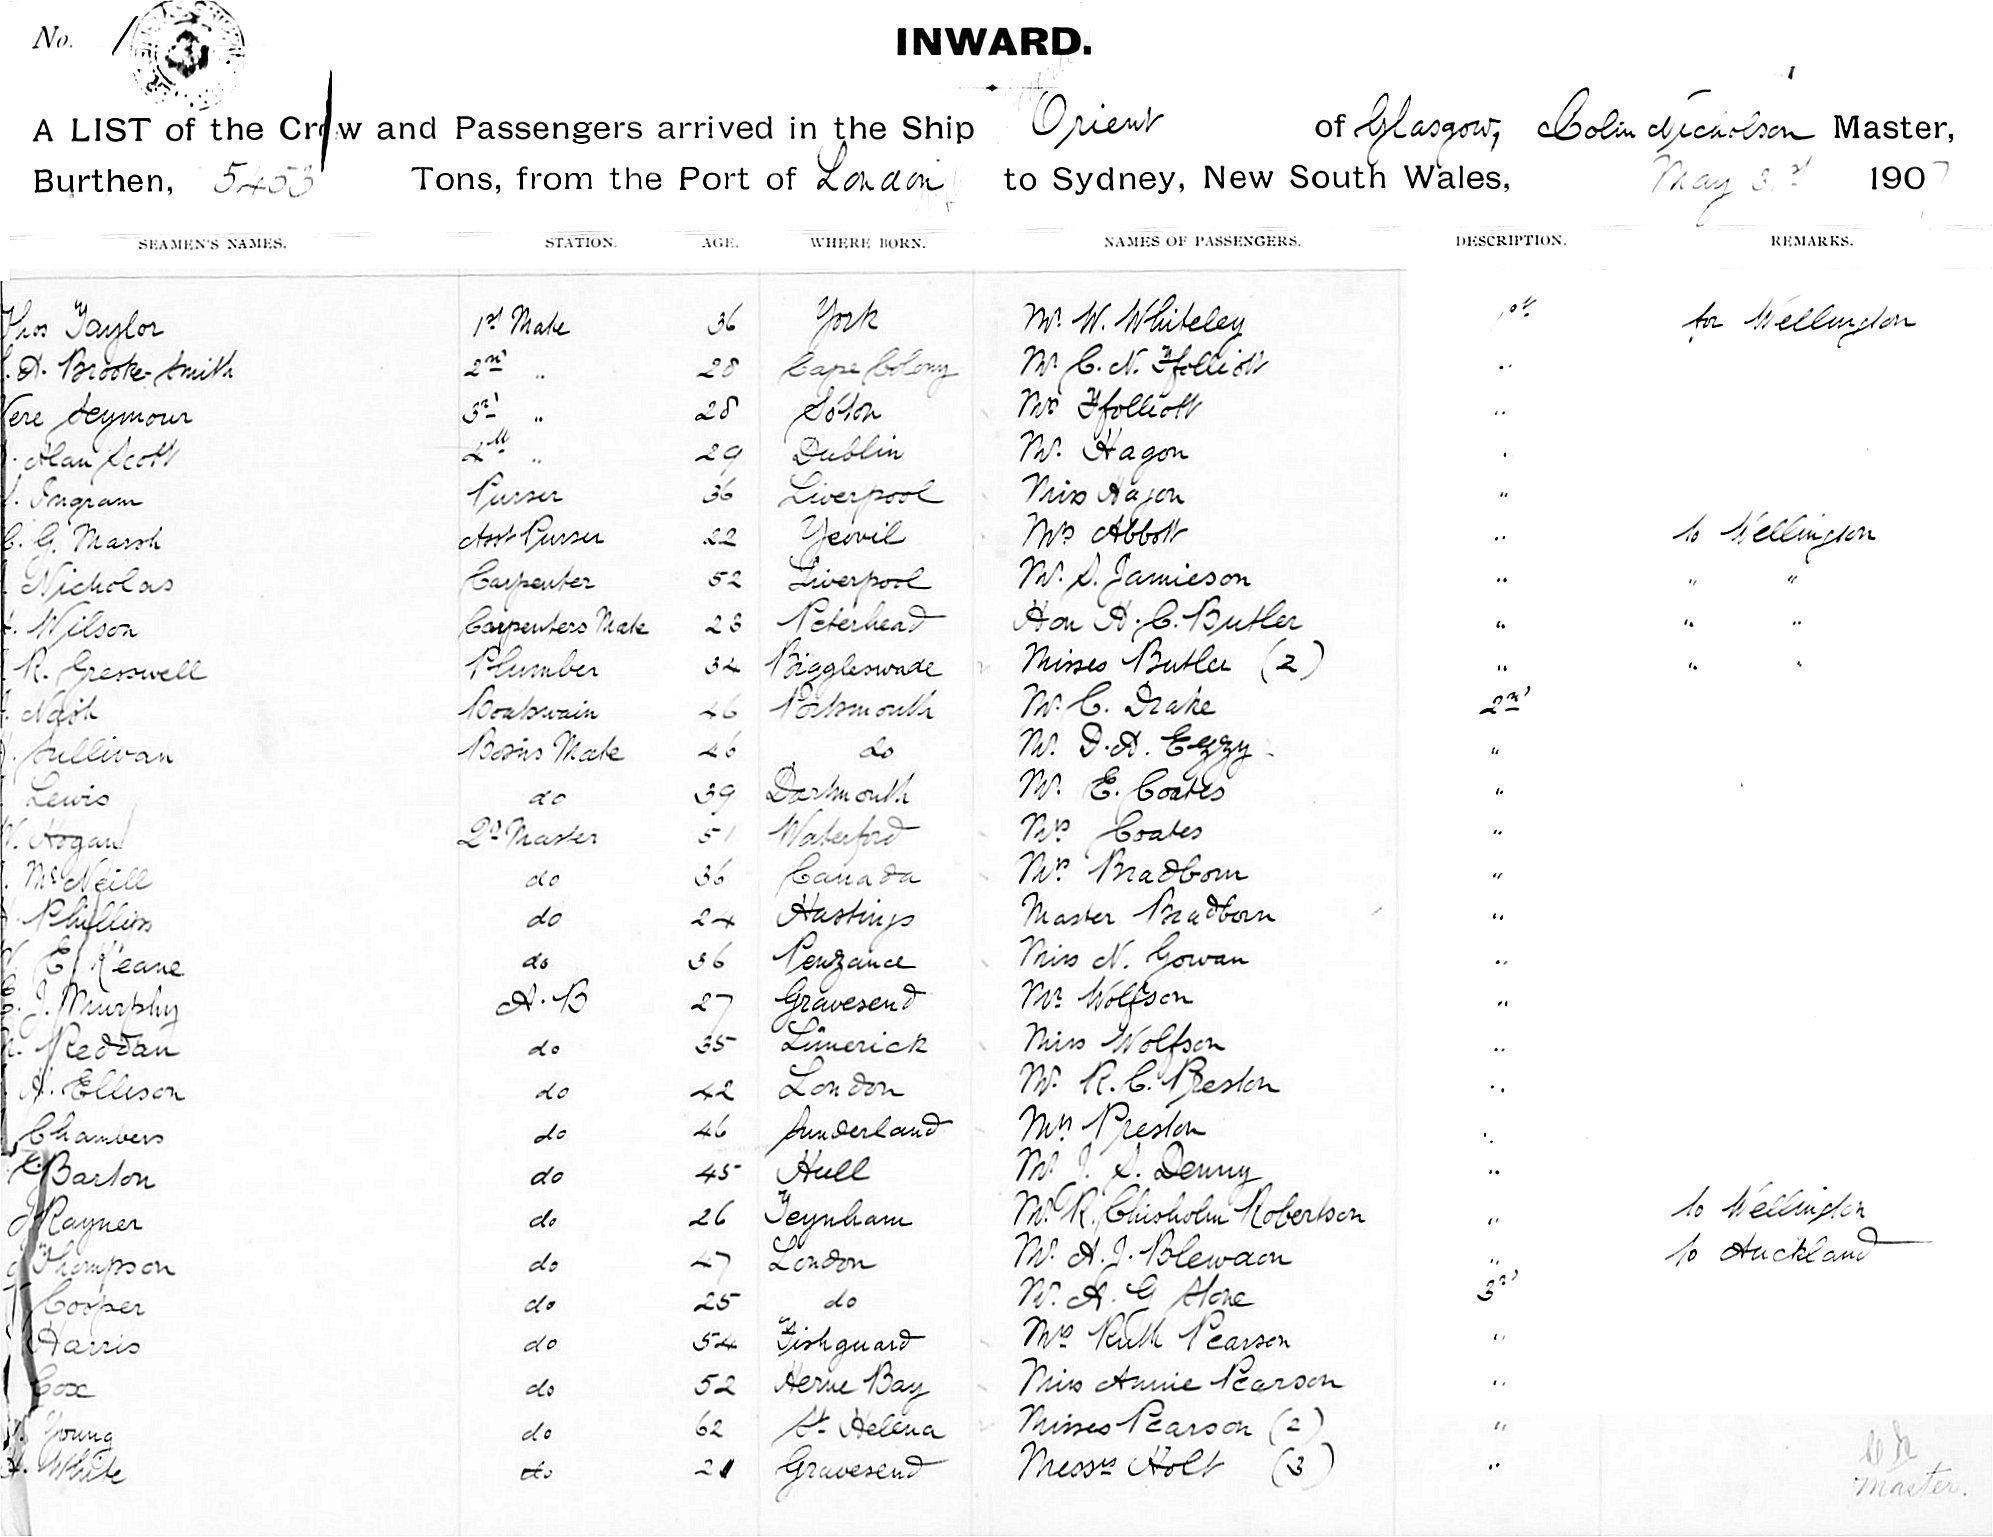 No. 1
INWARD.
A LIST of the Crew and Passengers arrived in the Ship Orient of Glasgow, Colin Nicholson Master,
Burthen, 5453 Tons, from the Port of London to Sydney, New South Wales, May 3rd 1907
SEAMEN'S NAMES. STATION. AGE. WHERE BORN. NAMES OF PASSENGERS. DESCRIPTION. REMARKS.
Thos Taylor 1st Mate 36 York Mr. W. Whiteley for Wellington
A. Brooke-Smith 2nd " 28 Cape Colony Mr. C. N. Ffolliott "
Vere Seymour 3rd " 28 So'ton Mrs Ffolliott "
Alan Scott 4th " 29 Dublin Mr. Hagon "
Ingram Purser 36 Liverpool Miss Hagon "
C. G. Marsh Asst Purser 22 Yeovil Mrs Abbott " to Wellington
Nicholas Carpenter 52 Liverpool Mr. S. Jamieson " " "
Wilson Carpenters Mate 23 Peterhead Hon H. C. Butler " " "
R. Gresswell Plumber 34 Biggleswade Misses Butler (2) " " "
Nash Boatswain 46 Portsmouth Mr. C. Drake 2nd
Sullivan Bosins Mate 46 do Mr. D. A. Ezzy "
Lewis do 39 Dartmouth Mr. E. Coates "
W. Hogan Qr Master 51 Waterford Mrs Coates "
McNeill do 36 Canada Mrs Bradborn "
Phillips do 24 Hastings Master Bradborn "
W. E. Keane do 36 Penzance Miss N. Gowan "
C. J. Murphy A.B 27 Gravesend Mr Wolfson "
Reddan do 35 Limerick Miss Wolfson "
A. Ellison do 42 London Mr. R. C. Preston "
Chambers do 46 Sunderland Mrs Preston "
Barton do 45 Hull Mr. J. S. Denny "
J Rayner do 26 Teynham Mr. R. Chisholm Robertson " to Wellington
Thompson do 47 London Mr. A. J. Blewdon " to Auckland
Cooper do 25 do Mr. A. G Stone 3rd
Harris do 54 Fishguard Mrs Ruth Pearson "
Cox do 52 Herne Bay Miss Annie Pearson "
Young do 62 St Helena Misses Pearson (2) "
White do 21 Gravesend Messrs Holt (3) "
Master.